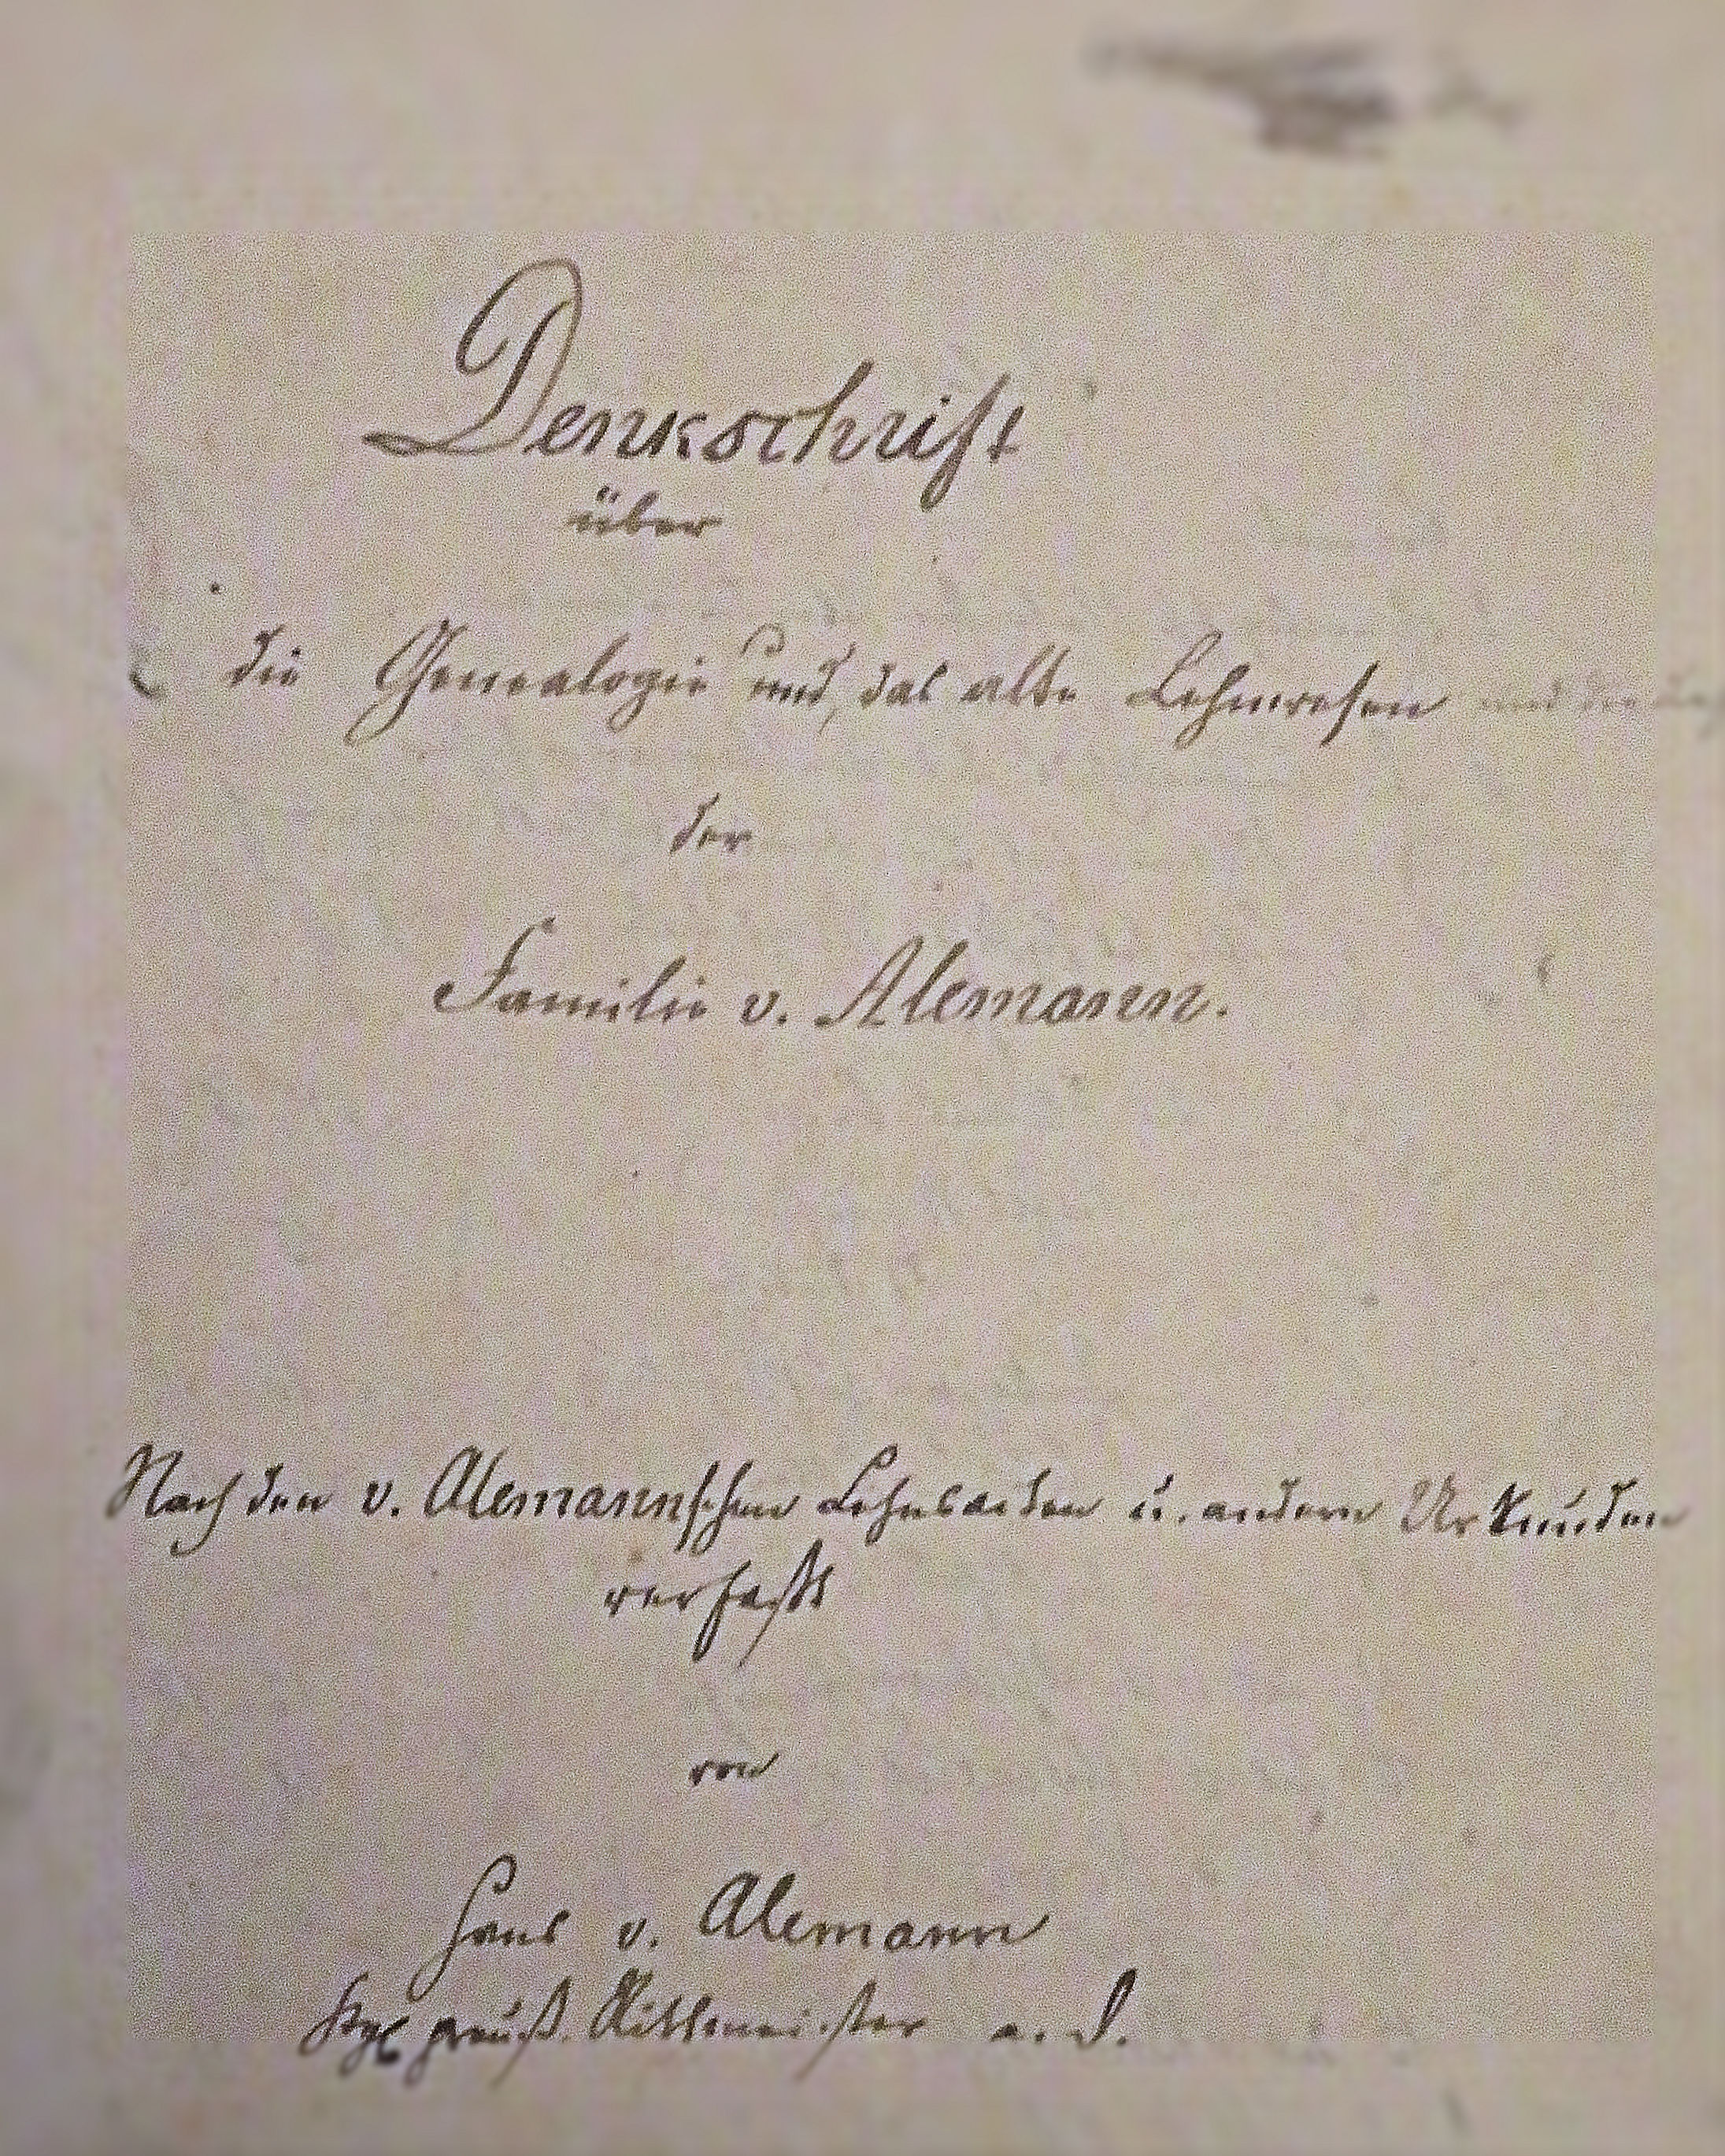 Denkschrift
über
die Genealogie und das alte Lehnwesen und
der
Familie v. Alemann.
Nach den v. Alemannschen Lehnsacten u. andern Urkunden
verfaßt
von
Hans v. Alemann
Kgl preuß. Rittmeister a. D.